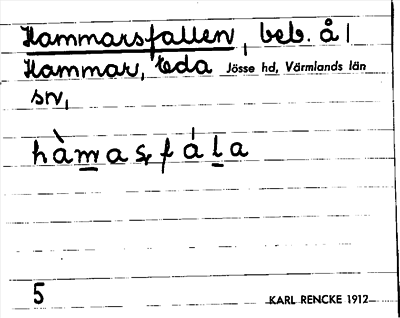 Hammarsfallen, beb. å
Hammar, Eda Jösse hd, Värmlands län
sn,
hàmasfála
5 KARL RENCKE 1912